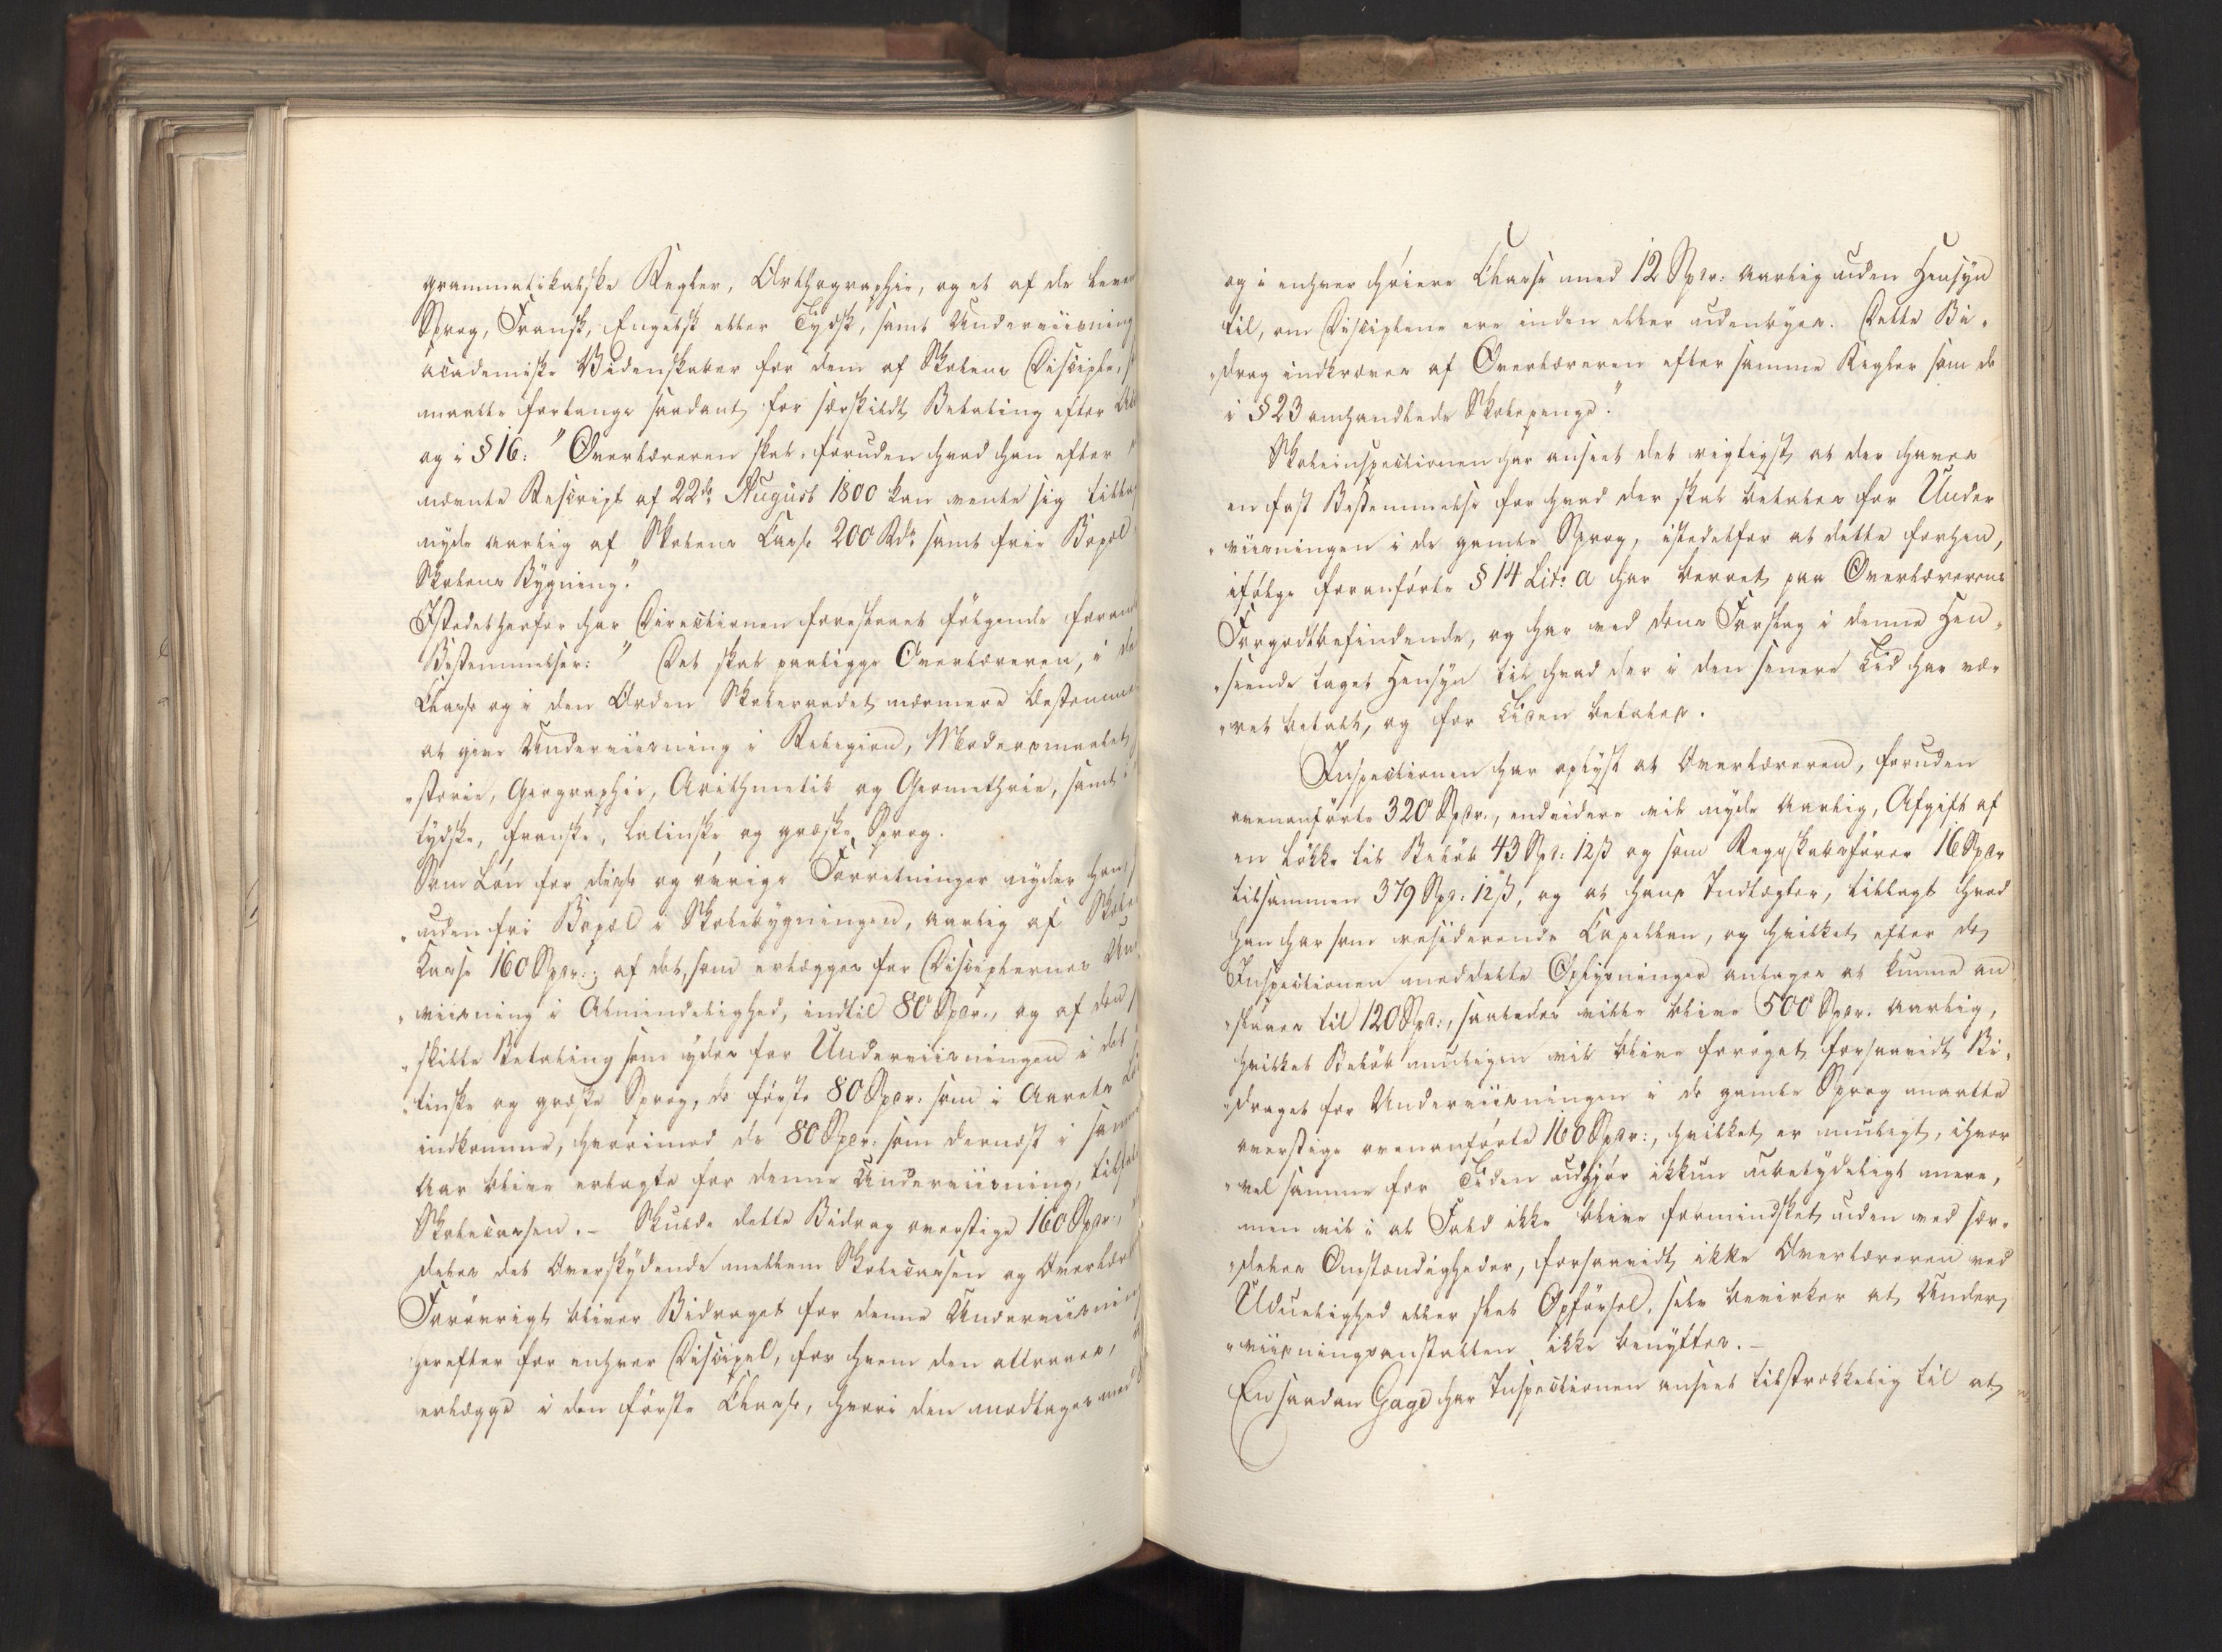 grammatikalske Regler, Orthographie, og et af de leven
Sprog, Fransk, Engelsk eller Tydsk, samt Underviisning
academiske Videnskaber for dem af Skolens Disciple, s
maatte forlange saadant for særskildt Betaling efter
og i § 16: "Overlæreren skal, foruden hvad han efter
nævnte Rescript af 22de August 1800 kan vente sig tillag
nyde aarlig af Skolens Casse 200 Rdr samt frie Bopæl
Skolens Bygning."
Istedetherfor har Directionen foreslaaet følgende foran
Bestemmelser: " Det skal paaligge Overlæreren, i de
Classe og i den Orden Skoleraadet nærmere bestemme
at give Underviisning i Religion, Modersmaalet
"storie, Geographie, Arithmetik og Geomethrie, samt i
tydske, franske, latinske og græske Sprog.
Som Løn for disse og øvrige Forretninger nyder han
"uden fri Bopæl i Skolebygningen, aarlig af Skole
Kasse 160 Spdr.; af det, som erlægges for Disciplernes Un
"viisning i Almindelighed, indtil 80 Spdr., og af den
"skilte Betaling som ydes for Underviisningen i det
"tinske og græske Sprog, de første 80 Spdr. som i Aarets
indkomme, hvorimod de 80 Spdr. som dernæst i samme
Aar blive erlagte for denne Underviisning, tilfal
Skolecassen. – Skulde dette Bidrag overstige 160 Spdr.,
deles det Overskydende mellem Skolecassen og Overlær
Forøvrigt bliver Bidraget for denne Underviisning
herefter for enhver Discipel, for hvem den attraaes,
erlægge i den første Classe, hvori den modtages med
og i enhver høiere Classe med 12 Spdr: aarlig uden Hensyn
til, om Disciplene ere inden eller udenbyes. Dette Bi-
"drag indkræves af Overlæreren efter samme Regler som de
i § 23 omhandlede Skolepenge."
Skoleinspectionen har anseet det rigtigst, at der haves
en fast Bestemmelse for hvad der skal betales for Under
"viisningen i de gamle Sprog, istedetfor at dette forhen,
ifølge foranførte § 14 Litr. a har beroet paa Overlærerens
Forgodtbefindende, og har ved dens Forslag i denne Hen-
"seende taget Hensyn til hvad der i den senere Tid har væ-
"ret betalt, og for Tiden betales.
Inspectionen har oplyst at Overlæreren, foruden
ovenanførte 320 Spdr., endvidere vil nyde aarlig, Afgift af
en Løkke til Beløb 43 Spd: 12 ß og som Regnskabsfører 16 Spdr
tilsammen 379 Spd: 12 ß, og at hans Indtægter, tillagt hvad
han har som residerende Capellan, og hvilket, efter de
Inspectionen meddeelte Oplysninger antages at kunne an
"slaaes til 120 Spd:, saaledes ville blive 500 Spdr. aarlig,
hvilket Beløb muligen vil blive forøget, forsaavidt Bi-
"draget for Underviisningen i de gamle Sprog maatte
overstige ovenanførte 160 Spdr:, hvilket er muligt, ihvor
"vel samme for Tiden udgjør ikkun ubetydeligt mere,
men vil i al Fald ikke blive formindsket, uden ved sær-
"deles Omstændigheder, forsaavidt ikke Overlæreren ved
Uduelighed eller slet Opførsel, selv bevirker at Under
"viisningsanstalten ikke benyttes. –
En saadan Gage har Inspectionen anseet tilstrækkelig til at